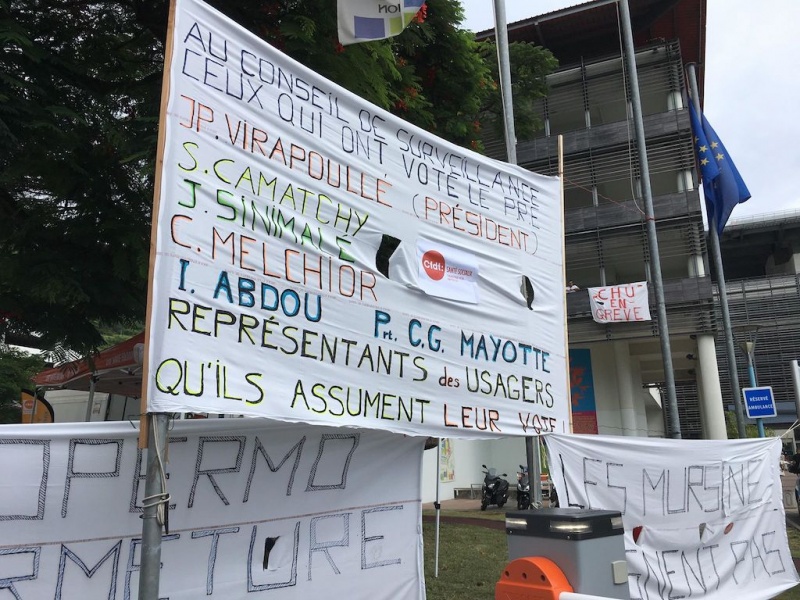 AU CONSEIL DE SURVEILLANCE
CEUX QUI ONT VOTÉ LE PRE
JP. VIRAPOULLE (PRÉSIDENT)
S. CAMATCHY
J. SINIMALÉ
C. MELCHIOR
I. ABDOU Prt. C.G. MAYOTTE
REPRÉSENTANTS des USAGERS
QU'ILS ASSUMENT LEUR VOTE !
Cfdt:
SANTÉ SOCIAUX
CHU
EN
GREVE
RÉSERVÉ
AMBULANCE
OPERMO
RMETURE
LES MURS NE
NENT PAS